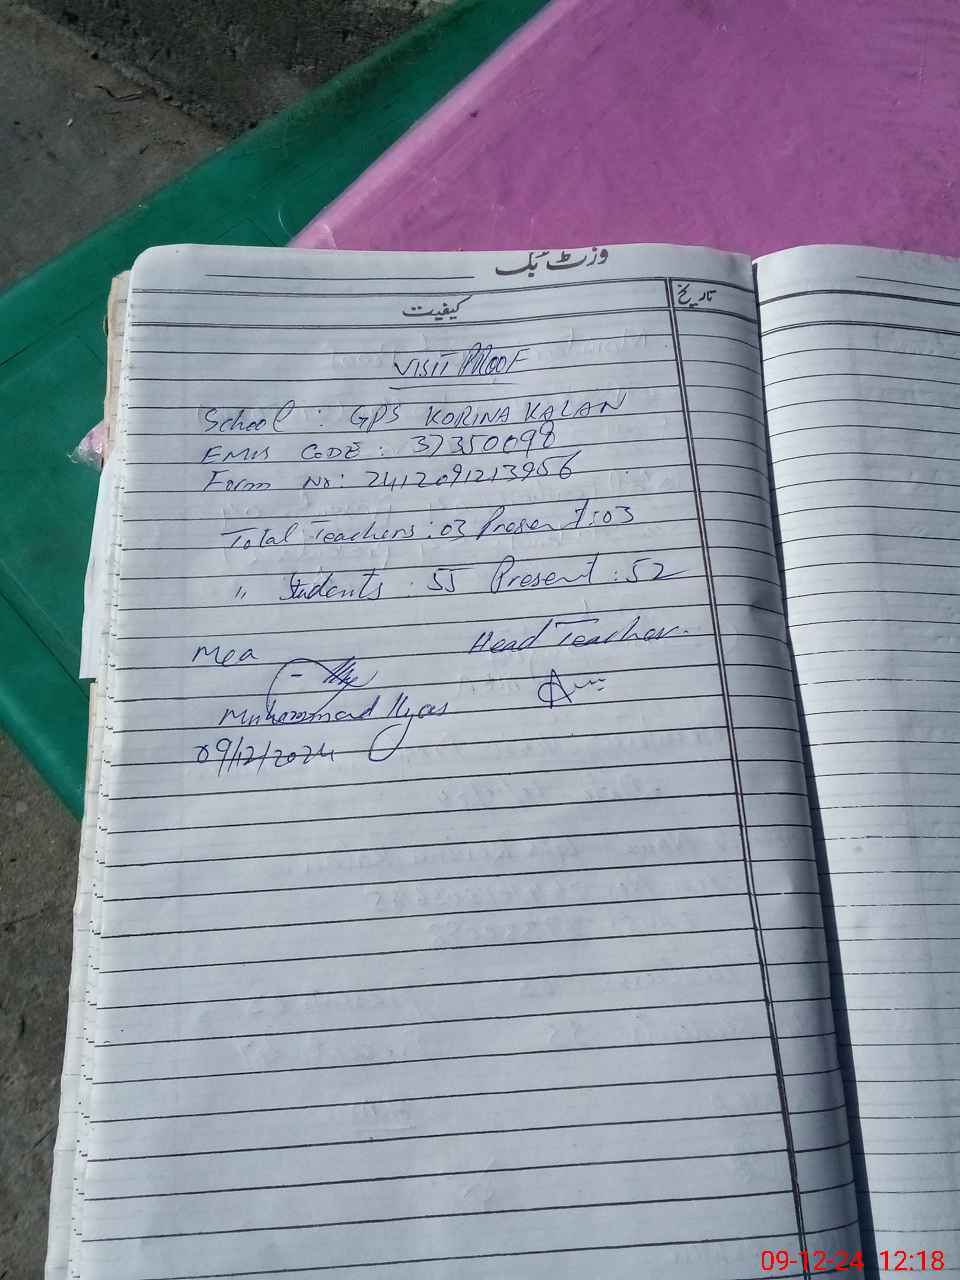 وزٹ بک
کیفیت
تاریخ
VISIT PROOF
School : GPS KORINA KALAN
EMIS CODE : 37350098
Form No: 2412091213956
Total Teachers : 03 Present : 03
" Students : 55 Present : 52
Mea
Head Teacher.
Muhammad Ilyas
09/12/2024
09-12-24 12:18